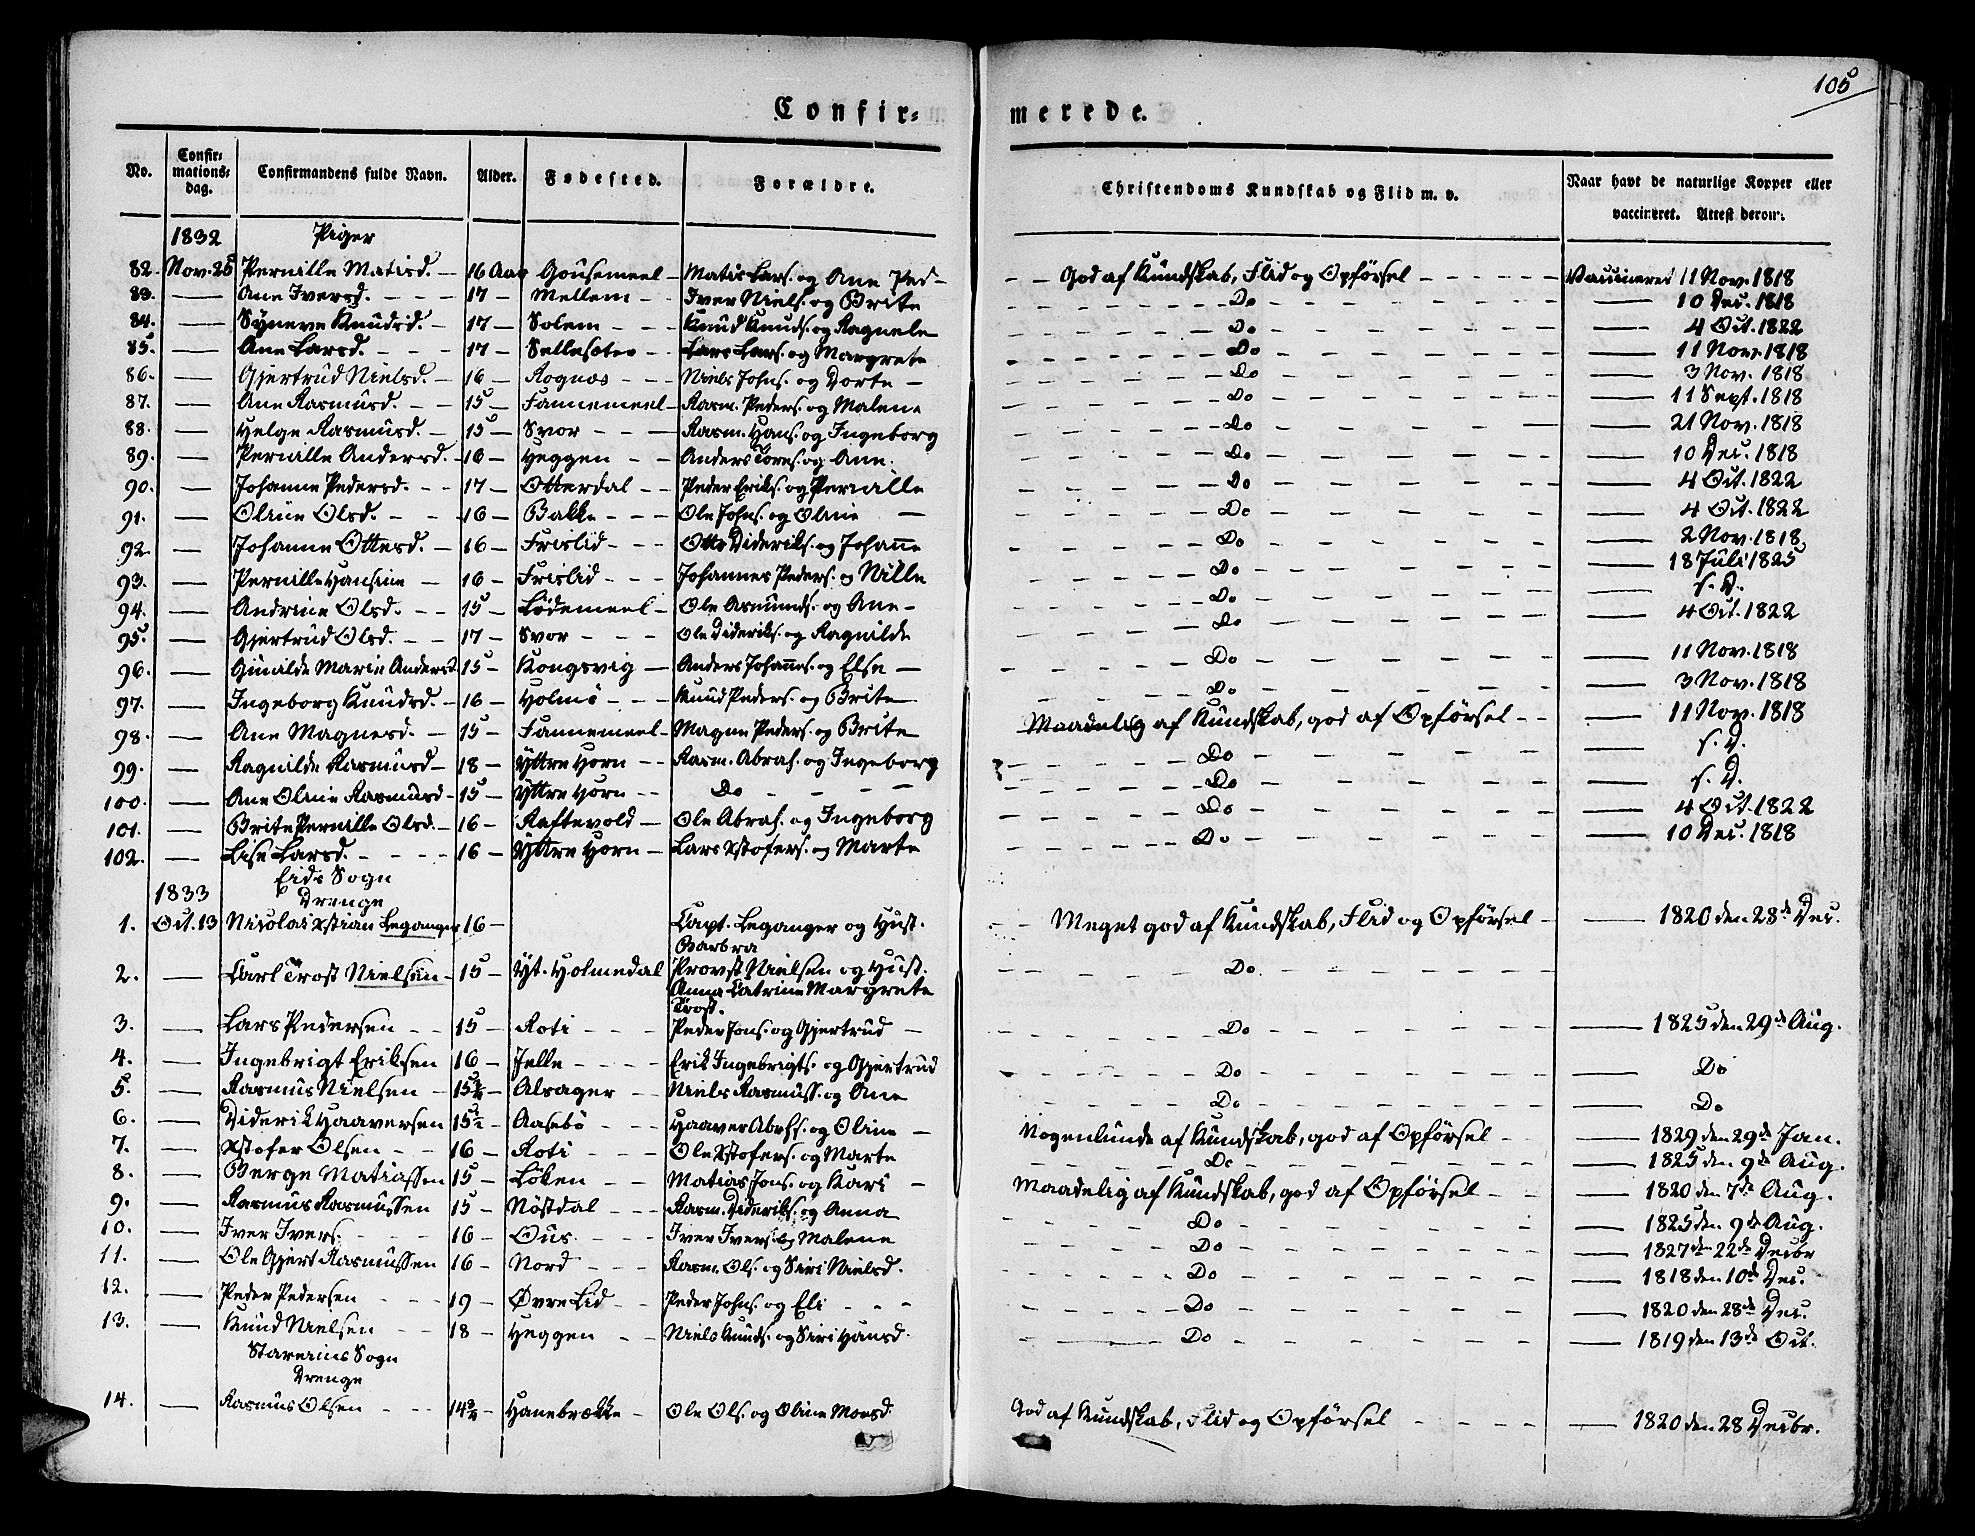 105
Confir=merede.
No. | Confir=mations=dag. | Confirmandens fulde Navn. | Alder. | Fødested. | Forældre. | Christendoms Kundskab og Flid m. v. | Naar havt de naturlige Kopper eller vaccineret. Attest derom.
1832 Piger
82. Nov. 25 Pernille Matisd. — 16 Aar Gousemeel — Matis Lars. og Ane Ped — God af Kundskab, Flid og Opførsel — Vaccineret 11 Nov. 1818
83. — Ane Iversd. — 17 — Mellem — Iver Niels. og Brite — Do — 10 Dec. 1818
84. — Syneve Knudsd. — 17 — Solem — Knud Knuds. og Ragnele — Do — 4 Oct. 1822
85. — Ane Larsd. — 17 — Sellesæter — Lars Lars. og Margrete — Do — 11 Nov. 1818
86. — Gjertrud Nielsd. — 16 — Rognæs — Niels Johns. og Dorte — Do — 3 Nov. 1818
87. — Ane Rasmusd. — 15 — Fannemeel — Rasm. Peders. og Malene — Do — 11 Sept. 1818
88. — Helge Rasmusd. — 15 — Svor — Rasm. Hans. og Ingeborg — Do — 21 Nov. 1818
89. — Pernille Andersd. — 16 — Heggen — Anders Tores. og Ane. — Do — 10 Dec. 1818
90. — Johanne Pedersd. — 17 — Otterdal — Peder Eriks. og Pernille — Do — 4 Oct. 1822
91. — Oline Olsd. — 16 — Bakke — Ole Johns. og Oline — Do — 4 Oct. 1822
92. — Johanne Ottesd. — 16 — Frislid — Otto Dideriks. og Johanne — Do — 2 Nov. 1818
93. — Pernille Hansine — 16 — Frislid — Johannes Peders. og Nille — Do — 18 Juli 1825
94. — Andrine Olsd. — 15 — Lødemeel — Ole Asmunds. og Ane — Do — s. D.
95. — Gjertrud Olsd. — 17 — Svor — Ole Dideriks. og Ragnilde — Do — 4 Oct. 1822
96. — Gunilde Marie Andersd. 15 — Kongsvig — Anders Johannes. og Else — Do — 11 Nov. 1818
97. — Ingeborg Knudsd. — 16 — Holmø — Knud Peders. og Brite — Do — 3 Nov. 1818
98. — Ane Magnesd. — 15 — Fannemeel — Magne Peders. og Brite — Maadelig af Kundskab, god af Opførsel — 11 Nov. 1818
99. — Ragnilde Rasmusd — 18 — Yttre Horn — Rasm. Abrah. og Ingeborg — Do — s. D.
100. — Ane Oline Rasmusd — 15 — Yttre Horn — Do — Do — s. D.
101. — Brite Pernille Olsd. — 16 — Raftevold — Ole Abrah. og Ingeborg — Do — 4 Oct. 1822
102. — Lise Larsd. — 16 — Yttre Horn — Lars Xstofers. og Marte — Do — 10 Dec. 1818
Eids Sogn
1833 Drenge
1. Oct. 13 Nicolai Xstian Leganger 16 — Capt. Leganger og Hust. — Meget god af Kundskab, Flid og Opførsel — 1820 den 28de Dec.
Barbra
2. — Carl Trost Nielsen — 15 — Yt. Holmedal Provst Nielsen og Hust. — Do
Anna Catrine Margrete
Trost.
3. — Lars Pedersen — 15 — Roti — Peder Jons. og Gjertrud — Do — 1825 den 29de Aug.
4. — Ingebrigt Eriksen 16 — Jelle — Erik Ingebrigts. og Gjertrud — Do — Do
5. — Rasmus Nielsen — 15 3/4 — Alsager — Niels Rasmuss. og Ane — Do — Do
6. — Diderik Haaversen 15 1/2 — Aasebø — Haaver Abrhs. og Oline — Nogenlunde af Kundskab, god af Opførsel — 1829 den 29de Jan.
7. — Xstofer Olsen — 16 — Roti — Ole Xstofers. og Marte — Do — 1825 den 9de Aug.
8. — Berge Matiassen 15 — Løken — Matias Jons. og Kari — Maadelig af Kundskab, god af Opførsel — 1820 den 7de Aug.
9. — Rasmus Rasmussen 15 — Nøstdal — Rasm. Dideriks. og Anna — Do — 1825 den 9de Aug.
10. — Iver Ivers. — 16 — Ous — Iver Ivers. og Malene — Do — 1827 den 22de Decbr
11. — Ole Gjert Rasmussen 16 — Nord — Rasm. Ols. og Siri Nielsd. — Do — 1818 den 10de Dec.
12. — Peder Pedersen — 19 — Øvre Lid — Peder Johns. og Eli — Do — 1820 den 28de Dec.
13. — Knud Nielsen — 18 — Heggen — Niels Knuds. og Siri Hansd. — Do — 1819 den 13de Oct.
Starems Sogn
Drenge
14. — Rasmus Olsen — 14 3/4 — Hanebrække — Ole Ols. og Oline Monsd. — God af Kundskab, Flid og Opførsel — 1820 den 28 Decbr.